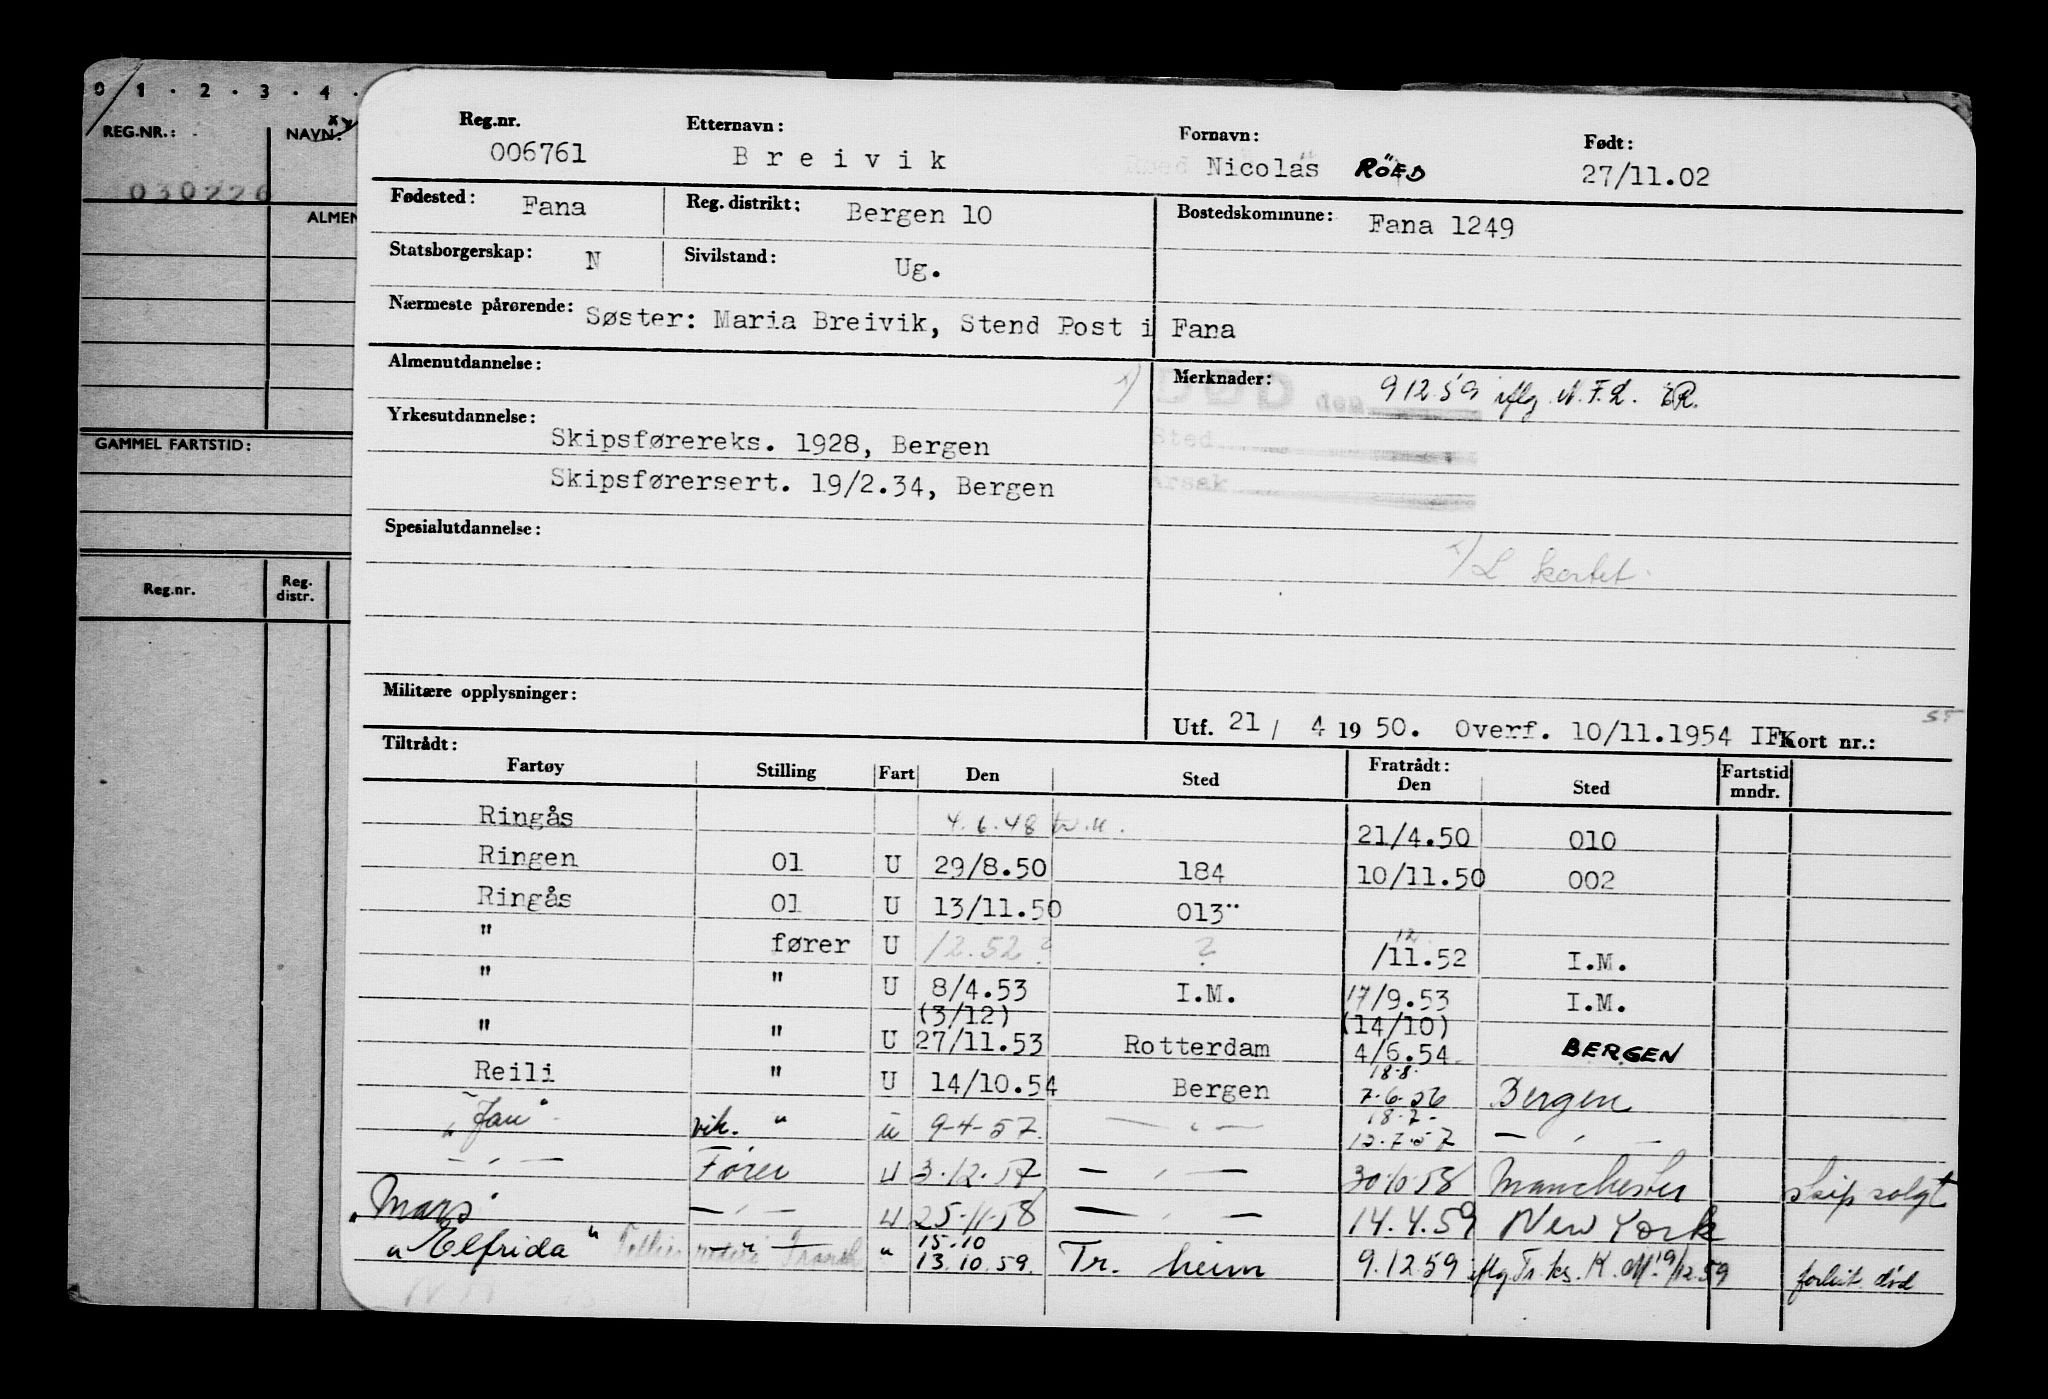 0 1 . 2 . 3 . 4 .
REG.NR.: NAVN:
030226
ALMEN
GAMMEL FARTSTID:
Reg.nr. Reg. distr.
Reg.nr. 006761 Etternavn: Breivik Fornavn: Nicolas RÖED Født: 27/11.02
Fødested: Fana Reg. distrikt: Bergen 10 Bostedskommune: Fana 1249
Statsborgerskap: N Sivilstand: Ug.
Nærmeste pårørende: Søster: Maria Breivik, Stend Post i Fana
Almenutdannelse: Merknader: x) DØD den 9 12.59 iflg. N.F.L. ER.
Yrkesutdannelse: Skipsførereks. 1928, Bergen Sted
Skipsførersert. 19/2.34, Bergen Årsak
Spesialutdannelse:
x) L kortet.
Militære opplysninger:
Utf. 21 / 4 19 50. Overf. 10/11.1954 IF. Kort nr.:
Tiltrådt: Fratrådt:
Fartøy Stilling Fart Den Sted Den Sted Fartstid mndr.
Ringås 4.6.48 21/4.50 010
Ringen 01 U 29/8.50 184 10/11.50 002
Ringås 01 U 13/11.50 013¨
" fører U 12.52 ? ? 12 /11.52 I.M.
" " U 8/4.53 I.M. 17/9.53 I.M.
(3/12) (14/10)
" " U 27/11.53 Rotterdam 4/6.54 BERGEN
18.8.
Reili " U 14/10.54 Bergen 7.6.56 Bergen
18.7.
"Jan" vik. " u 9-4-57. — " — 12.7.57 — " —
— " — Fører u 3.12.57 — " — 30.10.58 Manchester skip solgt
"Mars" — " — u 25-11-58 — " — 14.4.59 New York
15.10
"Elfrida" — " — " 13.10.59. Tr. heim 9.12.59 iflg Tr. ks. K. M. 19/12.59 forlist død